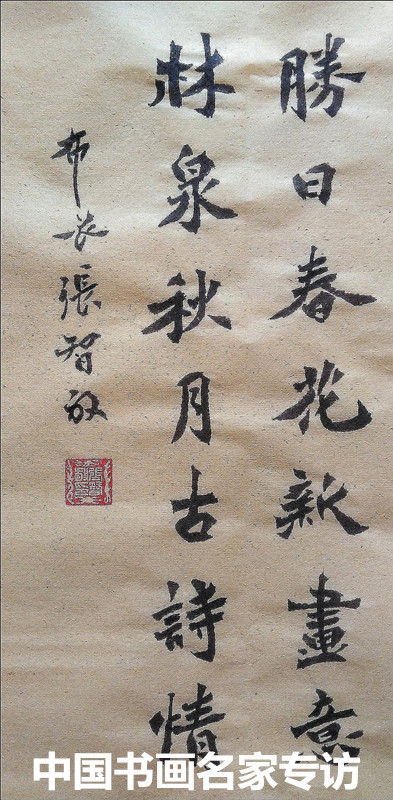 勝日春花新畫意
林泉秋月古詩情
布衣張智敏
中国书画名家专访